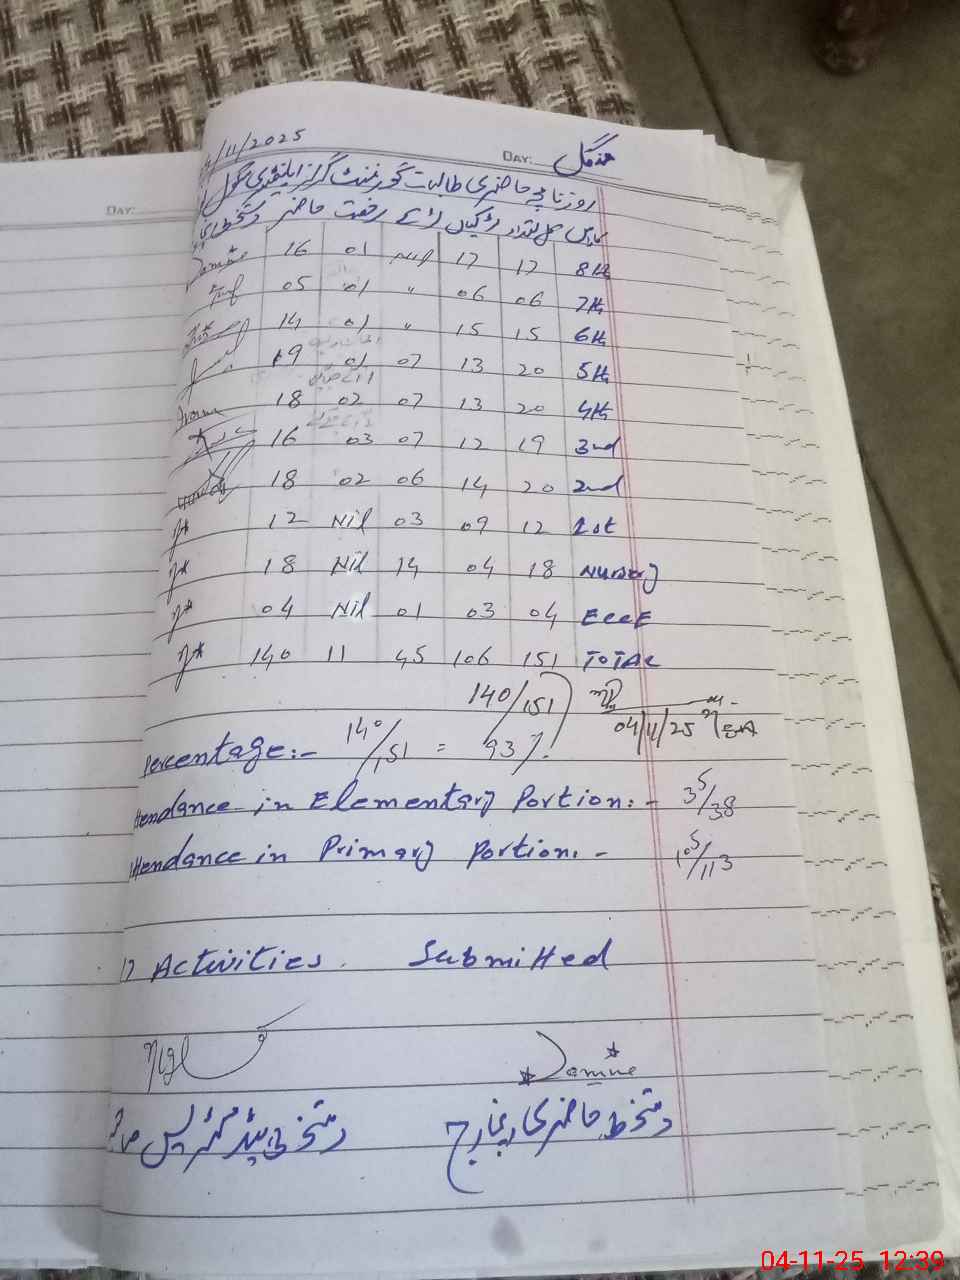 4/11/2025 DAY: منگل
DAY:
روزنامچہ حاضری طالبات گورنمنٹ گرلز ایلیمنٹری سکول
کلاس کل تعداد لڑکیاں لڑکے رخصت حاضر دستخط انچارج
Jamine 16 01 Nil 17 17 8th
05 01 " 06 06 7th
14 01 " 15 15 6th
19 01 07 13 20 5th
18 02 07 13 20 4th
16 03 07 12 19 3nd
18 02 06 14 20 2nd
12 Nil 03 09 12 1st
18 Nil 14 04 18 Nursery
04 Nil 01 03 04 EccE
140 11 45 106 151 TOTAL
140/151
04/11/25
Percentage:- 140/151 = 93%.
ttendance in Elementary Portion:- 35/38
ttendance in Primary Portion.- 105/113
17 Activities. Submitted
Jamine
دستخط حاضری انچارج دستخط ہیڈ مسٹریس
04-11-25 12:39